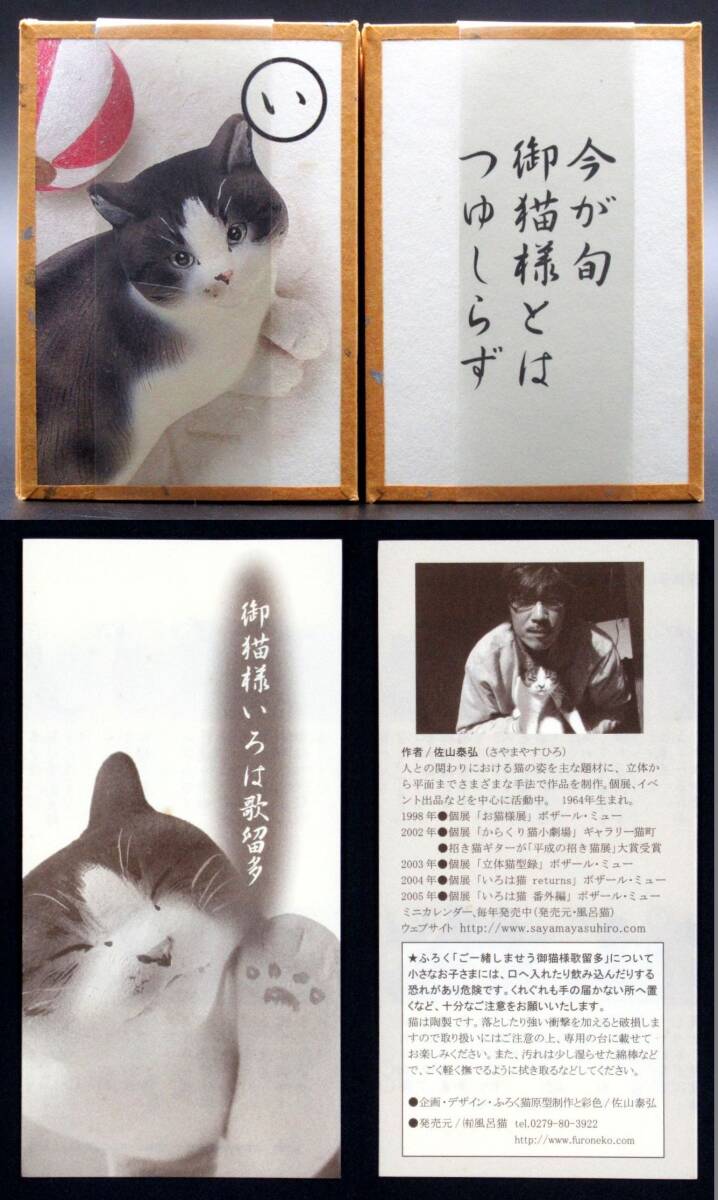 い
今が旬
御猫様とは
つゆしらず
御猫様いろは歌留多
作者/佐山泰弘（さやまやすひろ）
人との関わりにおける猫の姿を主な題材に、立体か
ら平面までさまざまな手法で作品を制作。個展、イベ
ント出品などを中心に活動中。 1964年生まれ。
1998年●個展「お猫様展」ボザール・ミュー
2002年●個展「からくり猫小劇場」ギャラリー猫町
●招き猫ギターが「平成の招き猫展」大賞受賞
2003年●個展「立体猫型録」ボザール・ミュー
2004年●個展「いろは猫 returns」ボザール・ミュー
2005年●個展「いろは猫 番外編」ボザール・ミュー
ミニカレンダー、毎年発売中（発売元・風呂猫）
ウェブサイト http://www.sayamayasuhiro.com
★ふろく「ご一緒しませう御猫様歌留多」について
小さなお子さまには、口へ入れたり飲み込んだりする
恐れがあり危険です。くれぐれも手の届かない所へ置
くなど、十分なご注意をお願いいたします。
猫は陶製です。落としたり強い衝撃を加えると破損しま
すので取り扱いにはご注意の上、専用の台に載せて
お楽しみください。また、汚れは少し湿らせた綿棒など
で、ごく軽く撫でるように拭き取るなどしてください。
●企画・デザイン・ふろく猫原型制作と彩色/佐山泰弘
●発売元/㈲風呂猫 tel.0279-80-3922
http://www.furoneko.com